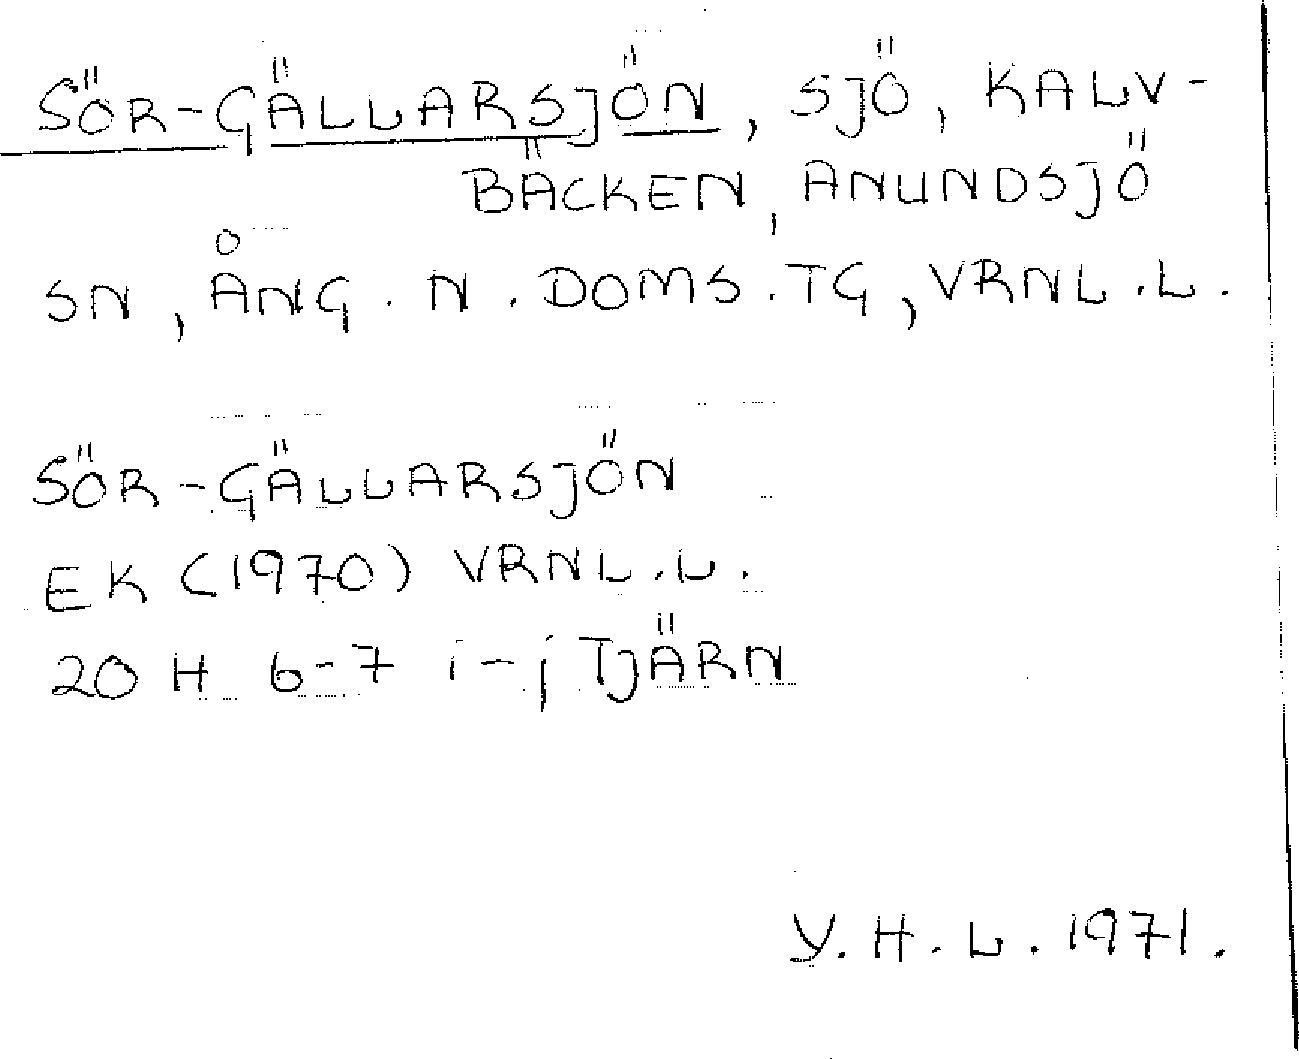 SÖR-GÄLLARSJÖN, SJÖ, KALV-
BÄCKEN, ANUNDSJÖ
SN, ÅNG. N. DOMS. TG, VRNL.L.
SÖR-GÄLLARSJÖN
EK (1970) VRNL.L.
20 H 6-7 i-j TJÄRN
Y. H. L. 1971.